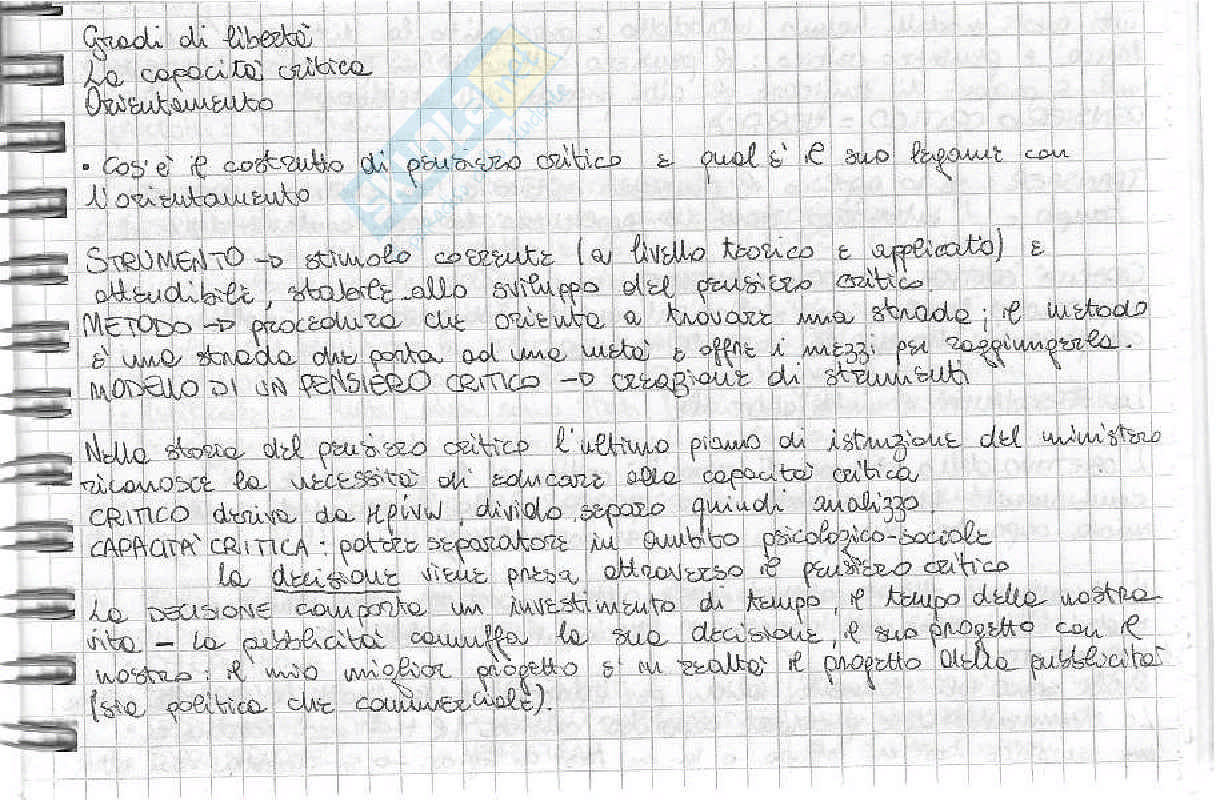 Gradi di libertà
La capacità critica
Orientamento
• Cos'è il costrutto di pensiero critico e qual è il suo legame con
l'orientamento
STRUMENTO → stimolo coerente (a livello teorico e applicato) e
attendibile, stabile allo sviluppo del pensiero critico.
METODO → procedura che orienta a trovare una strada; il metodo
è una strada che porta ad una meta e offre i mezzi per raggiungerla.
MODELLO DI UN PENSIERO CRITICO → creazione di strumenti
Nella storia del pensiero critico l'ultimo piano di istruzione del ministero
riconosce la necessità di educare alla capacità critica
CRITICO deriva da κρίνω, divido, separo quindi analizzo.
CAPACITÀ CRITICA: potere separatore in ambito psicologico-sociale
la decisione viene presa attraverso il pensiero critico
La DECISIONE comporta un investimento di tempo, il tempo della nostra
vita – La pubblicità camuffa la sua decisione, il suo progetto con il
nostro: il mio miglior progetto è in realtà il progetto della pubblicità
(sia politica che commerciale).
SKUOLA.net